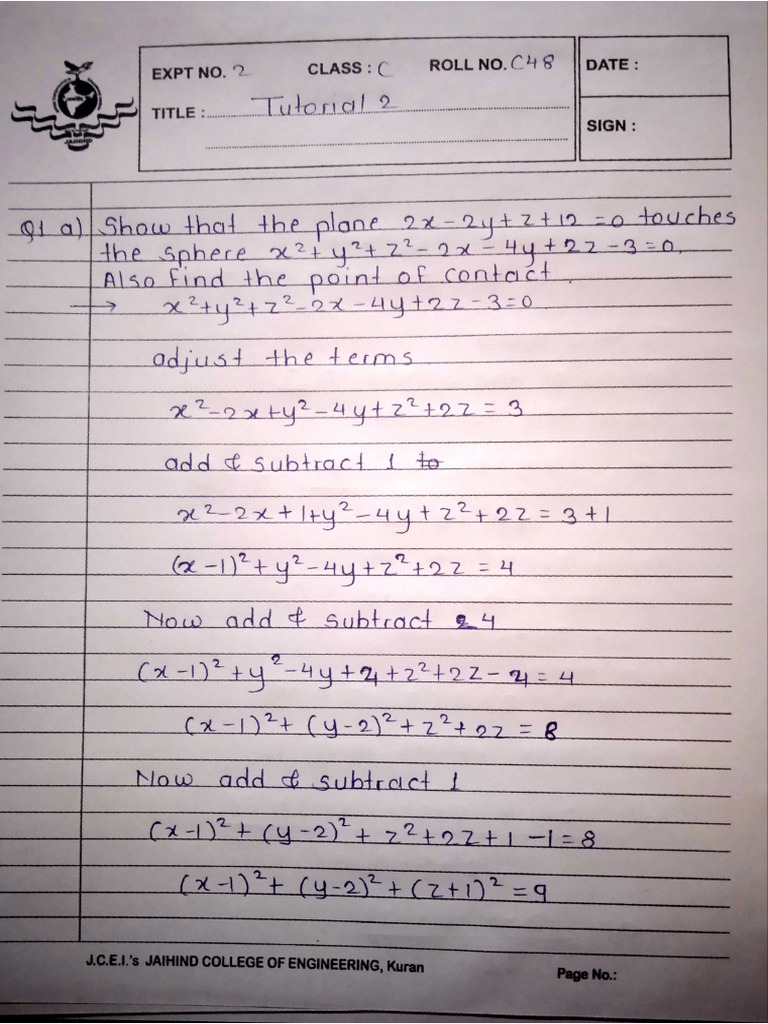 EXPT NO. 2 CLASS : C ROLL NO. C48 DATE :
TITLE : Tutorial 2
SIGN :
JAIHIND
Q1 a) Show that the plane 2x-2y+z+12=0 touches
the sphere x²+y²+z²-2x-4y+2z-3=0.
Also find the point of contact.
→ x²+y²+z²-2x-4y+2z-3=0
adjust the terms
x²-2x+y²-4y+z²+2z = 3
add & subtract 1 to
x²-2x+1+y²-4y+z²+2z = 3+1
(x-1)²+y²-4y+z²+2z = 4
Now add & subtract 4
(x-1)²+y²-4y+4+z²+2z-4=4
(x-1)²+(y-2)²+z²+2z = 8
Now add & subtract 1
(x-1)²+(y-2)²+z²+2z+1-1=8
(x-1)²+(y-2)²+(z+1)²=9
J.C.E.I.'s JAIHIND COLLEGE OF ENGINEERING, Kuran
Page No.: